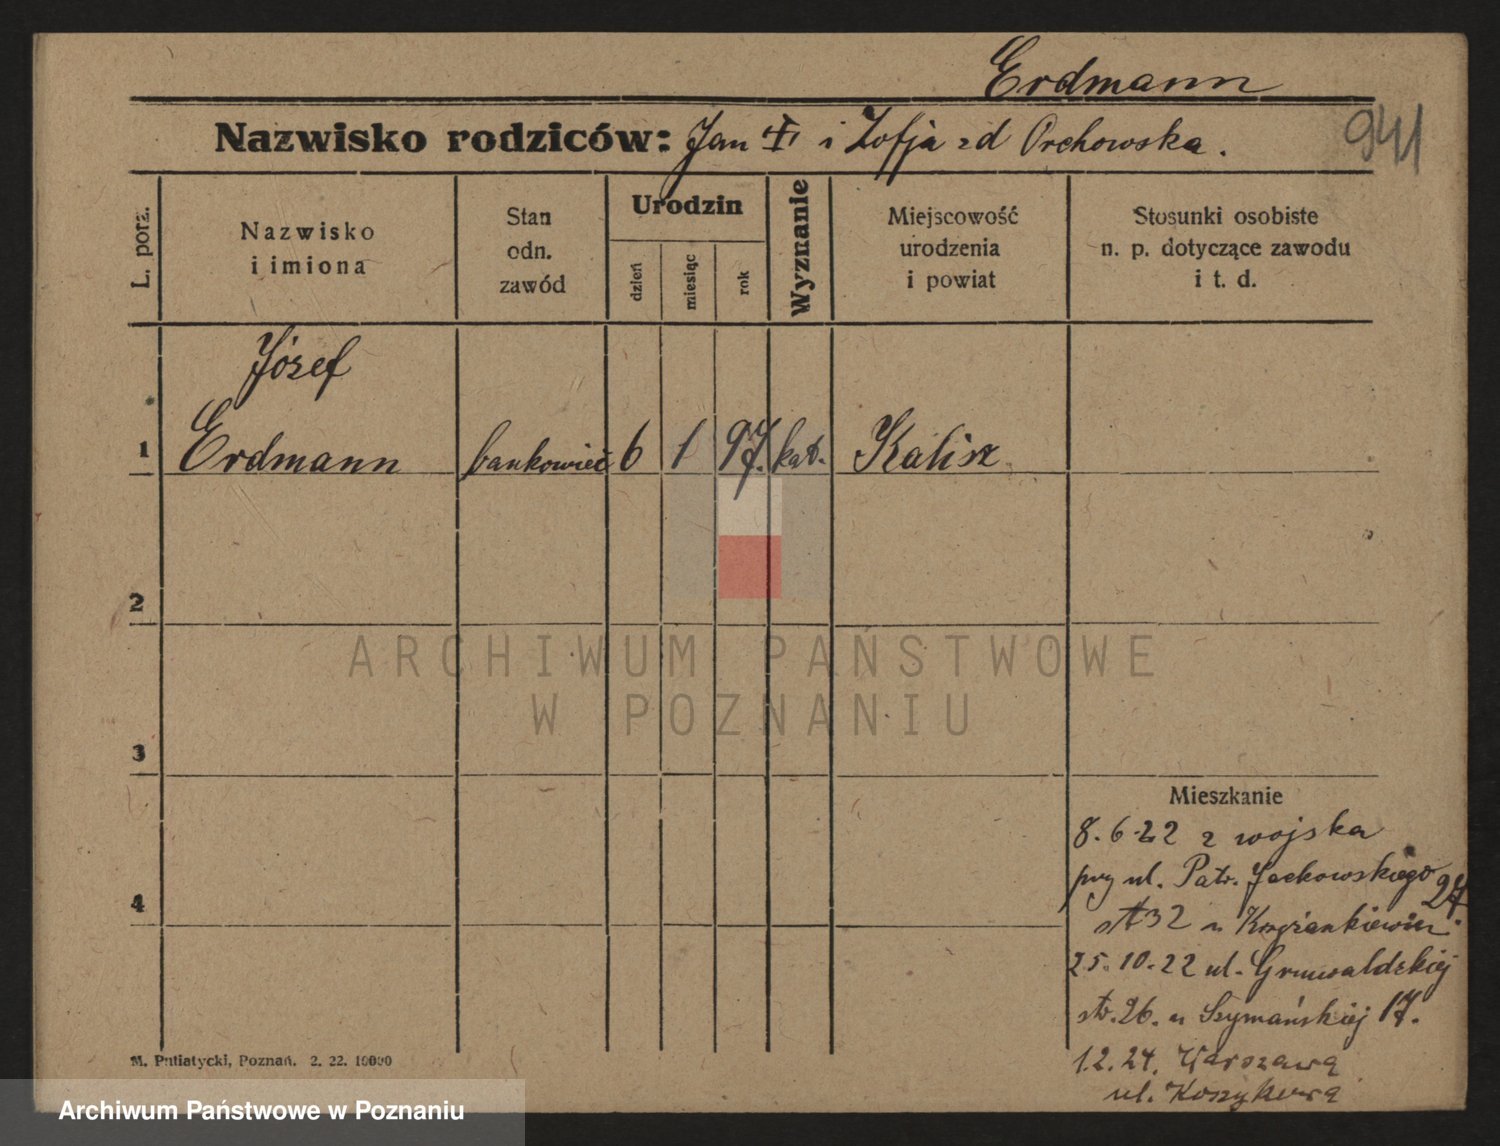 Erdmann
Nazwisko rodziców: Jan i Zofja zd Orchowska.
941
L. porz.
Nazwisko
i imiona
Stan
odn.
zawód
Urodzin
dzień
miesiąc
rok
Wyznanie
Miejscowość
urodzenia
i powiat
Stosunki osobiste
n. p. dotyczące zawodu
i t. d.
Józef
1 Erdmann bankowiec 6 1 97. kat. Kalisz
2
3
4
Mieszkanie
8.6.22 z wojska
przy ul. Patr. Jackowskiego 27.
str 32 u
25.10.22 ul. Grunwaldzkiej
str. 26. u Szymańskiej 17.
1.2.24. Warszawa
ul. Koszykowa
M. Putiatycki, Poznań. 2. 22. 10000
ARCHIWUM PAŃSTWOWE
W POZNANIU
Archiwum Państwowe w Poznaniu